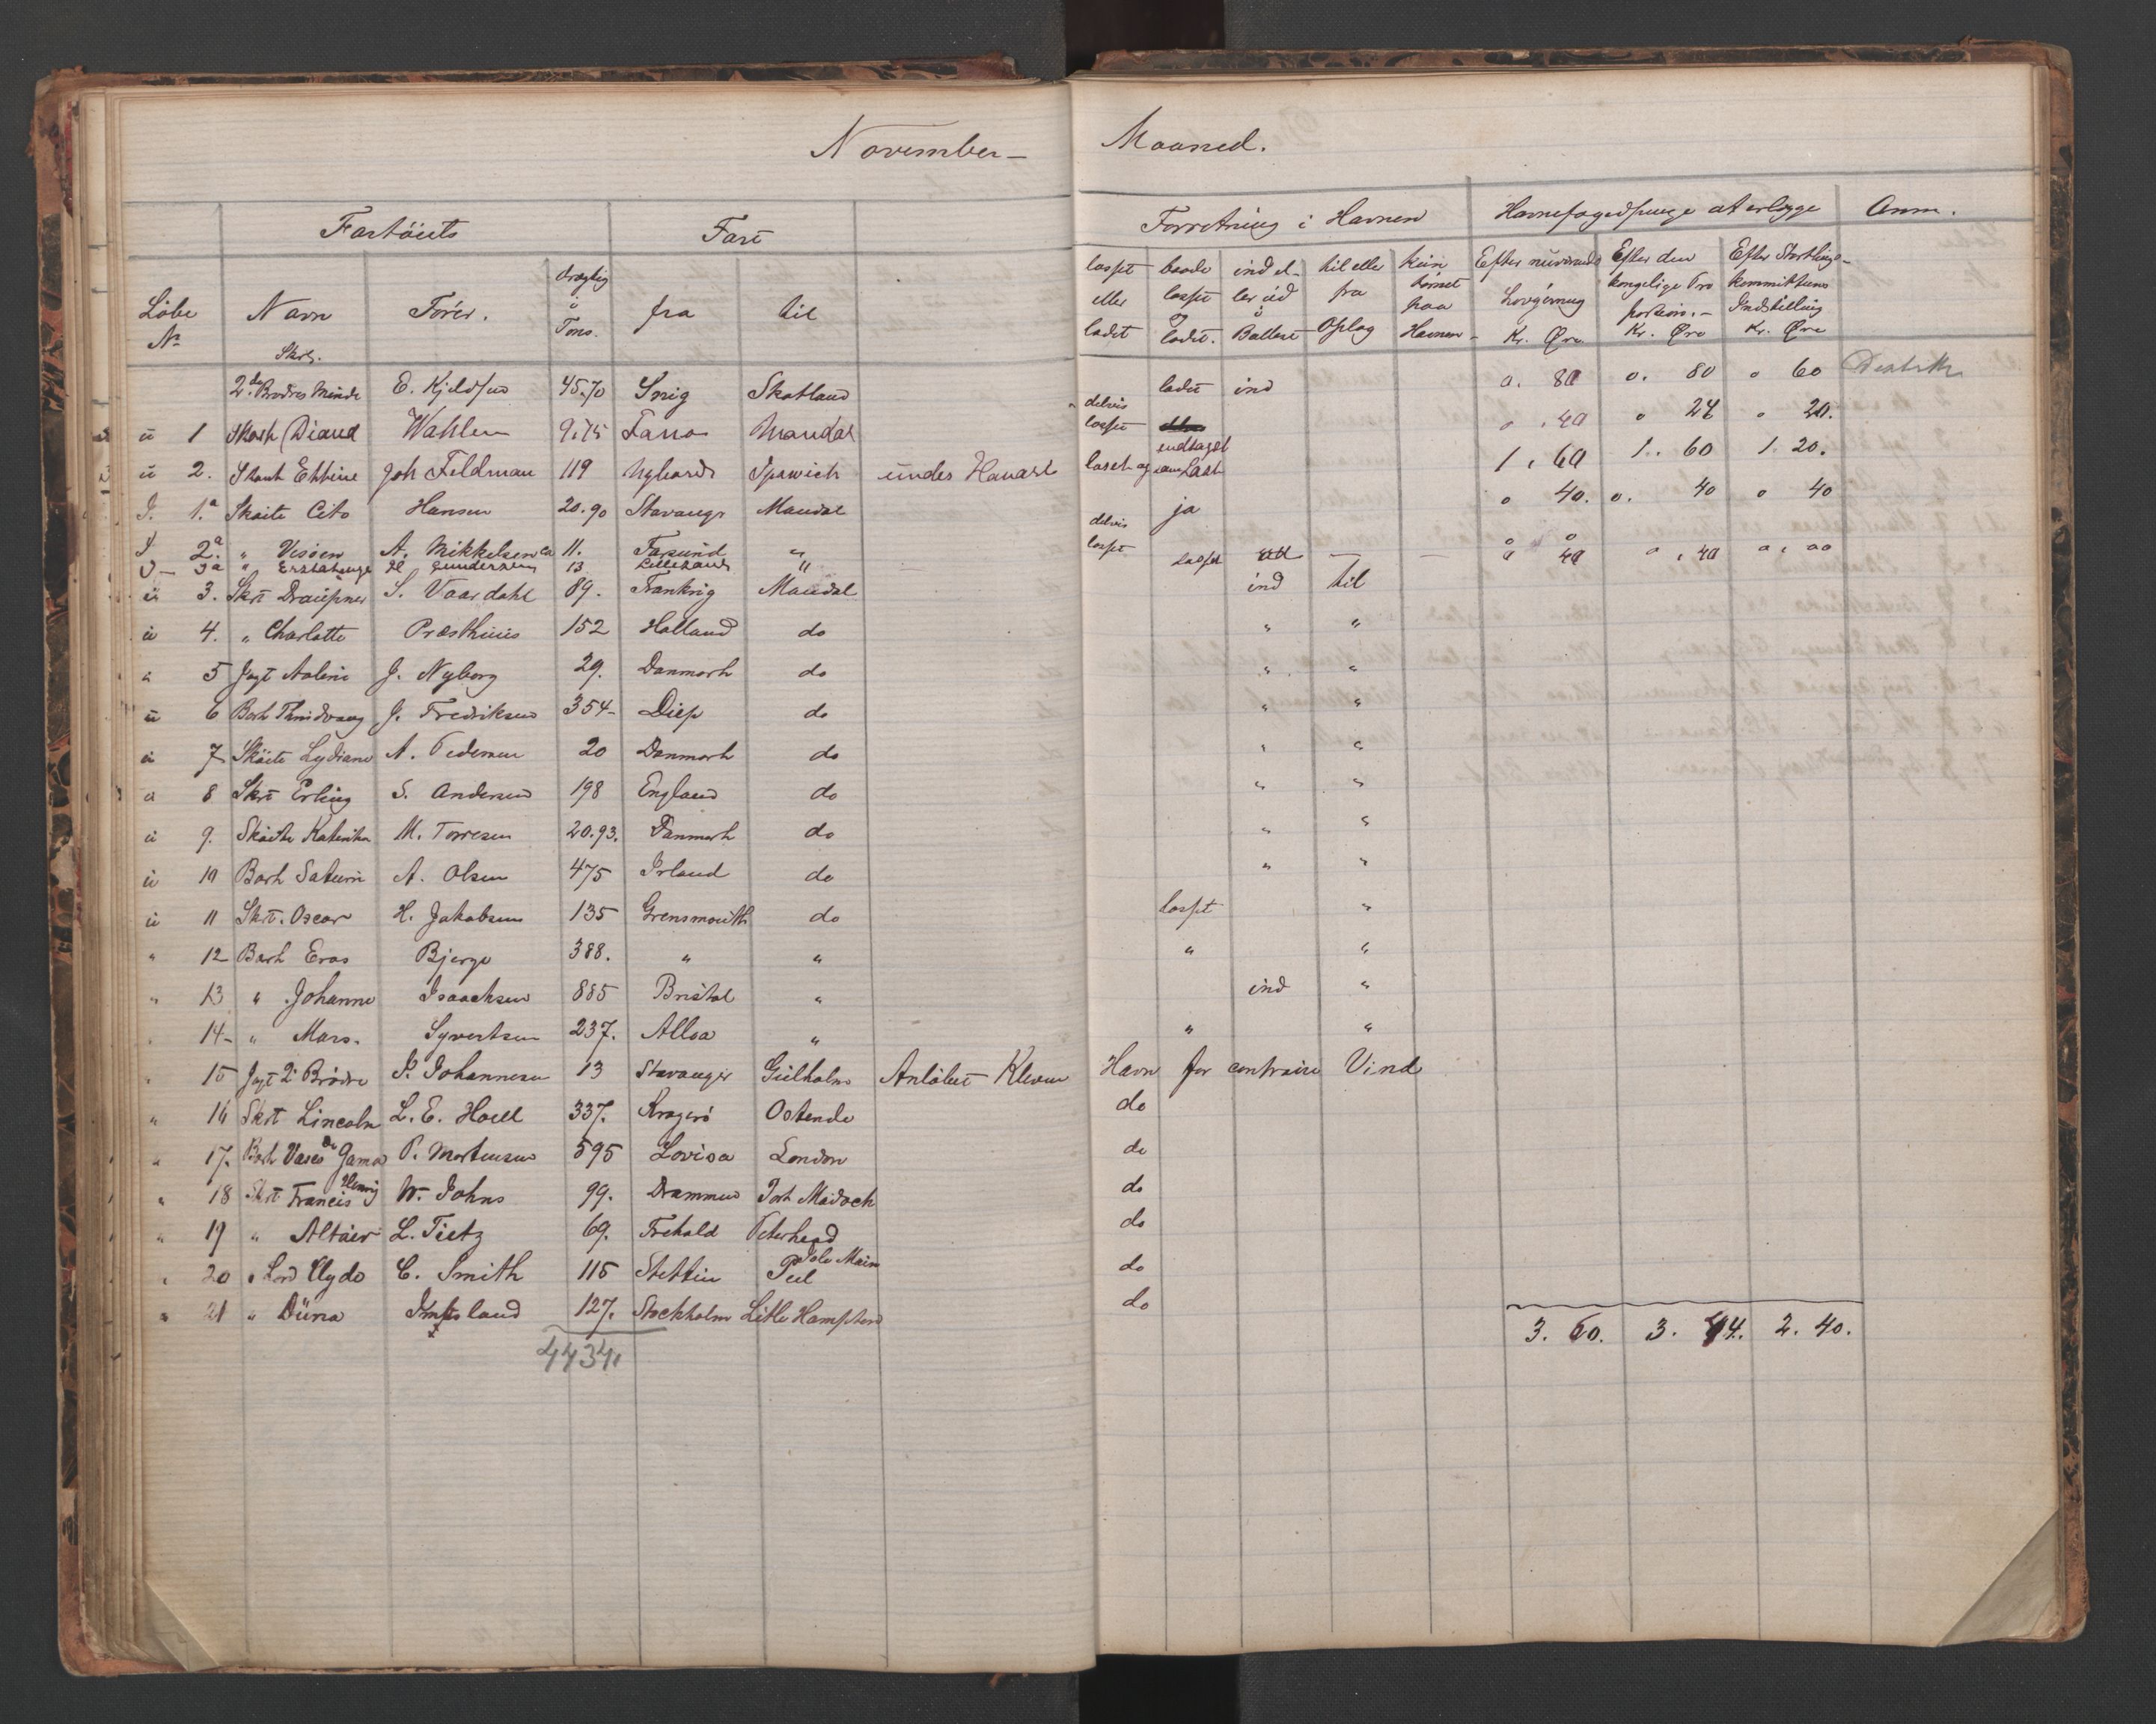 November – Maaned.
Fartöiets Fart Forretning i Havnen Havnefogedpenge at erlægge Anm.
Löbe No Navn Förer. drægtig i Tons. fra til losset eller ladet baade losset og ladet. ind el- ler ud i Ballast til eller fra Oplag kun paa Havnen Efter nuværende Lovgivning Kr. Øre Efter den kongelige Pro position.– Kr. Øre Efter Storthings- kommitteens Indstilling Kr. Øre
Skrt.
2de Brødres Minde E. Kjeldsen 45.70 Snig Skotland ladet ind 0. 80 0. 80 0 60
ü 1 Diana Wahlen 9.75 Mandal delvis losset 0 . 40 0 24 0 20.
ü 2. Joh Feldman 119 Nyhavn Ipswich under Havari losset og Last 1 . 60 1.. 60 1. 20.
I. 1.a Skøite Cito Hansen 20.90 Stavanger Mandal ja 0 40. 0. 40 0 40
I 2.a " Visöen A. Mikkelsen ca 11. Farsund " delvis losset
I – 3a " H Gundersen 13 Lillesand " losset — — 0 40 0 . 40 0 . 00
ü 3. Skrt Draupner S. Vaardahl 89. Frankrig Mandal ind til
ü 4. " Charlotte Præsthuus 152 Holland do " "
" 5 Jagt Aoline J. Nyborg 29. Danmark do " "
ü 6 Bark Thrudvang J. Fredriksen 354– Diep do " "
ü 7 Sköite Lydiane A. Pedersen 20 Danmark do " "
ü 8 Skrt Erling S. Andersen 198 England do " "
ü 9. Sköite Katinka M. Torresen 20.93. Danmark do " "
ü 10 Bark Saturn A. Olsen 475 Irland do " "
ü 11 Skrt. Oscar H. Jakobsen 135 Grensmouth do losset "
" 12 Bark Eros Bjerge 388. " " " "
" 13 " Johanne Isaachsen 885 Bristol " ind "
" 14– " Mars. Syvertsen 237. Alloa " " "
" 15 Jagt 2 Brödre P. Johannesen 13 Stavanger Gulholm Anlöbet Kleven Havn for contraire Vind
" 16 Skrt Lincoln L. E. Hoell 337. Kragerö Ostende do
" 17. Bark Vasco de Gama P. Mortensen 595 Lovisa London do
" 18 Skrt Francis Henrij W. Johns 99. Drammen Port Madock do
" 19 " Altair L. Tietz 69. Frehald Peterhead do
" 20 " Lord Clyde C. Smith 115 Stettin Peel Isle Main do
" 21 " Düna 127. Stockholm Litle Hampton do
4434. 3. 60. 3. 44. 2. 40.